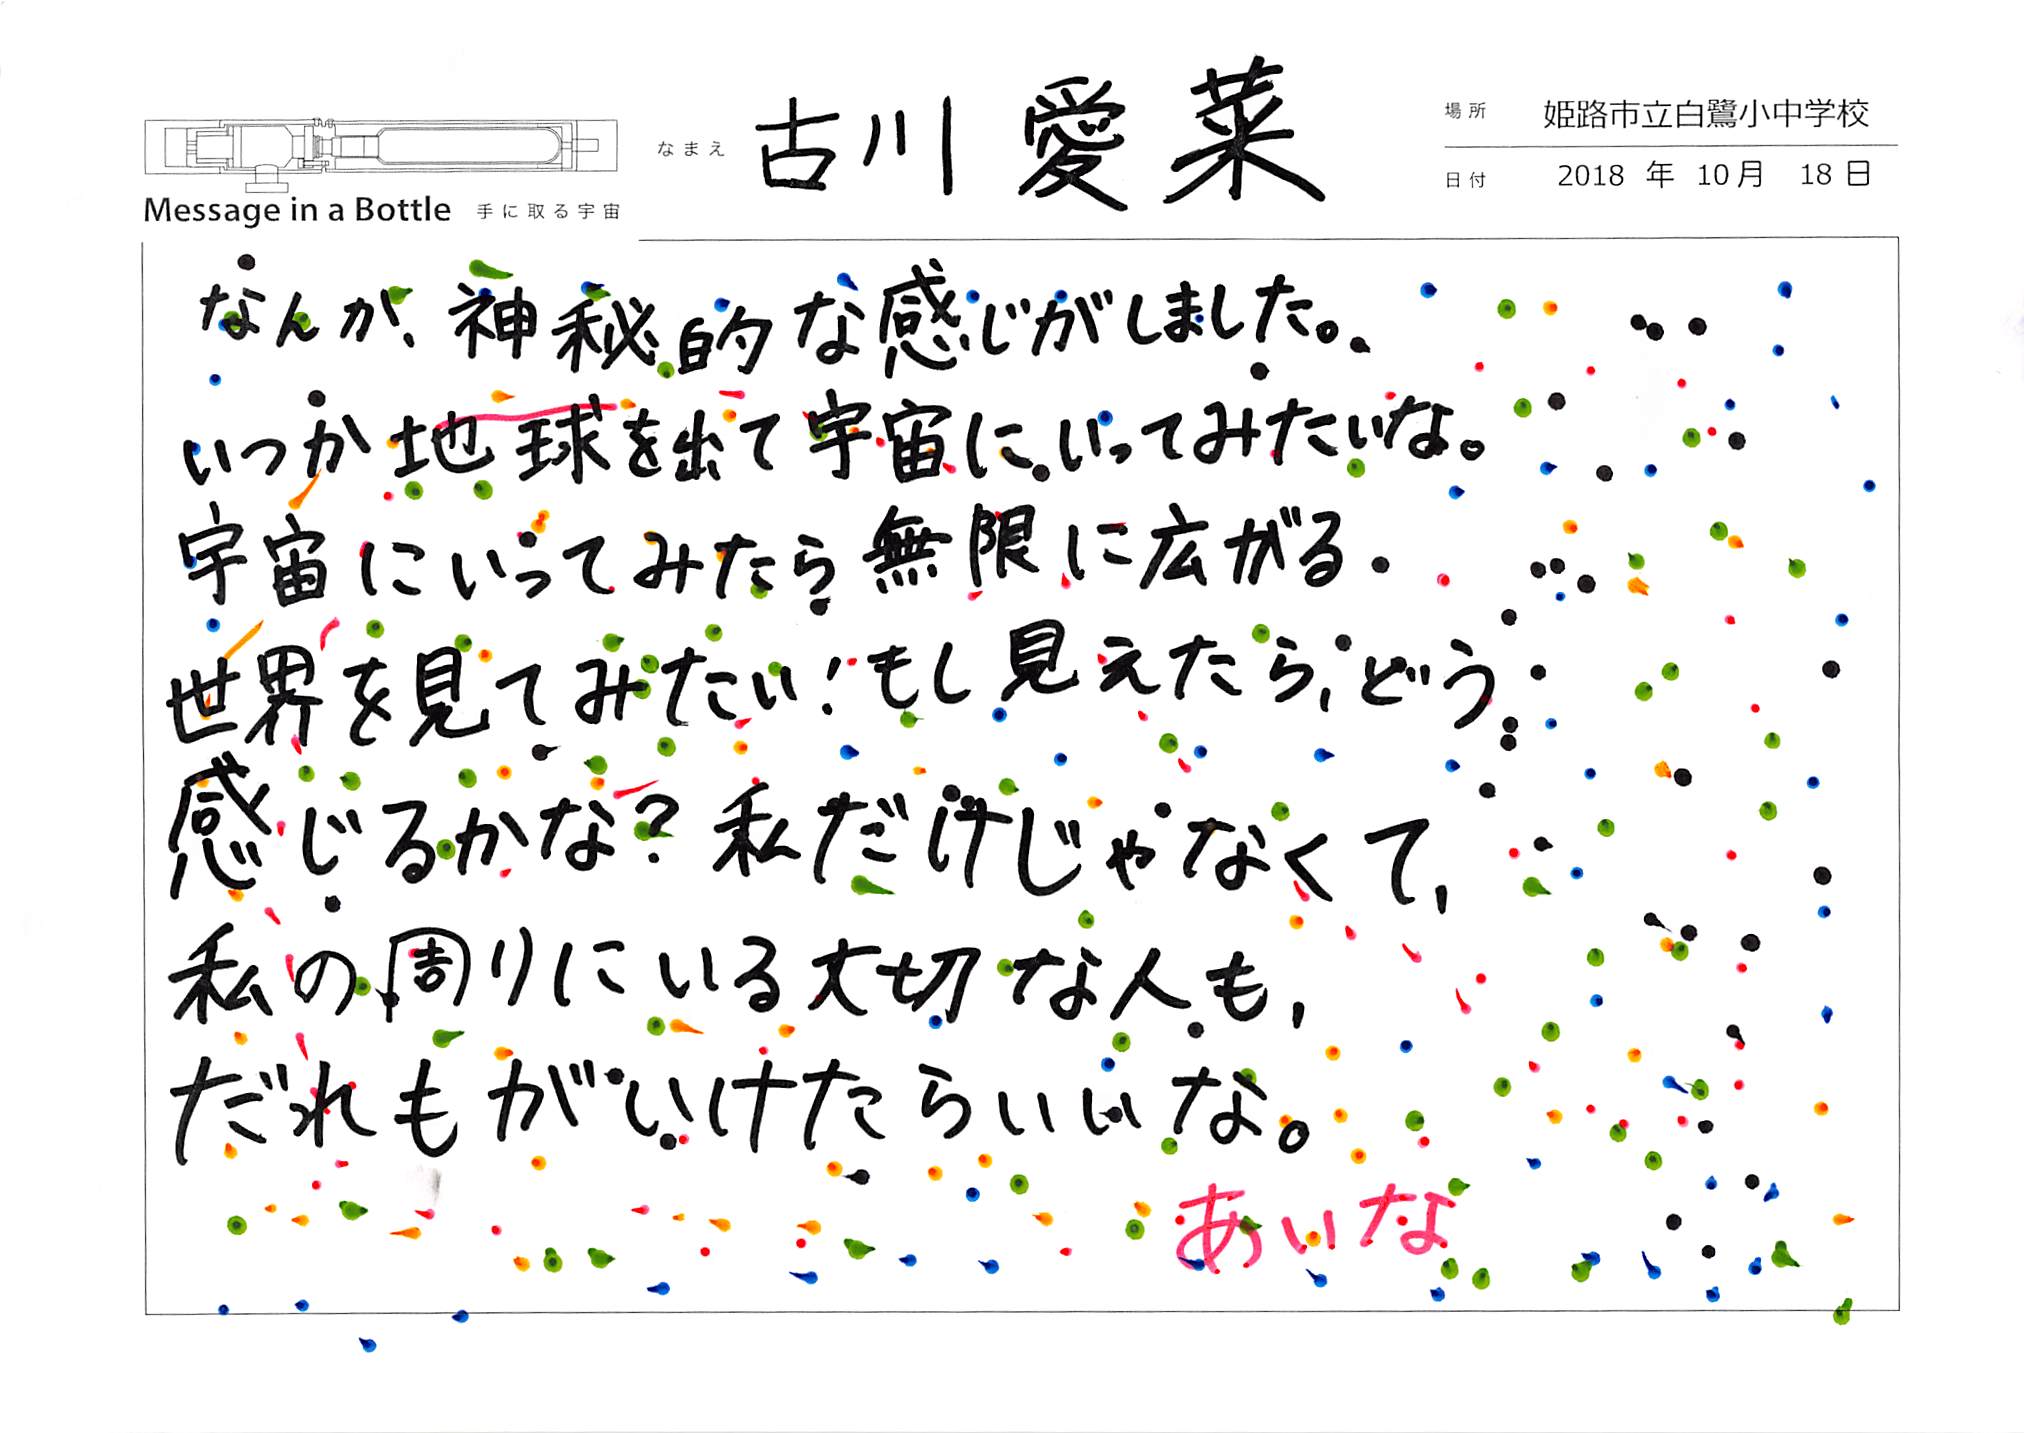 なまえ 古川 愛菜
場所 姫路市立白鷺小中学校
日付 2018 年 10月 18日
Message in a Bottle 手に取る宇宙
なんか、神秘的な感じがしました。
いつか地球を出て宇宙に、いってみたいな。
宇宙にいってみたら無限に広がる
世界を見てみたい!もし見えたら、どう
感じるかな?私だけじゃなくて、
私の周りにいる大切な人も、
だれもがいけたらいいな。
あいな